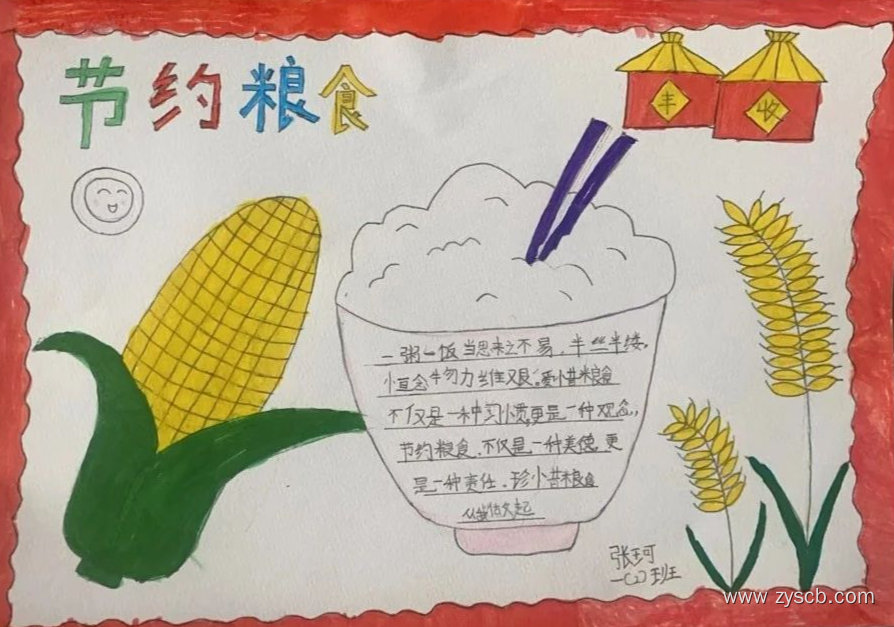 节约粮食
丰 收
一粥一饭当思来之不易,半丝半缕,
恒念物力维艰,爱惜粮食
不仅是一种习惯,更是一种观念,
节约粮食,不仅是一种美德,更
是一种责任,珍惜粮食
从做起
张珂
一(2)班
www.zyscb.com